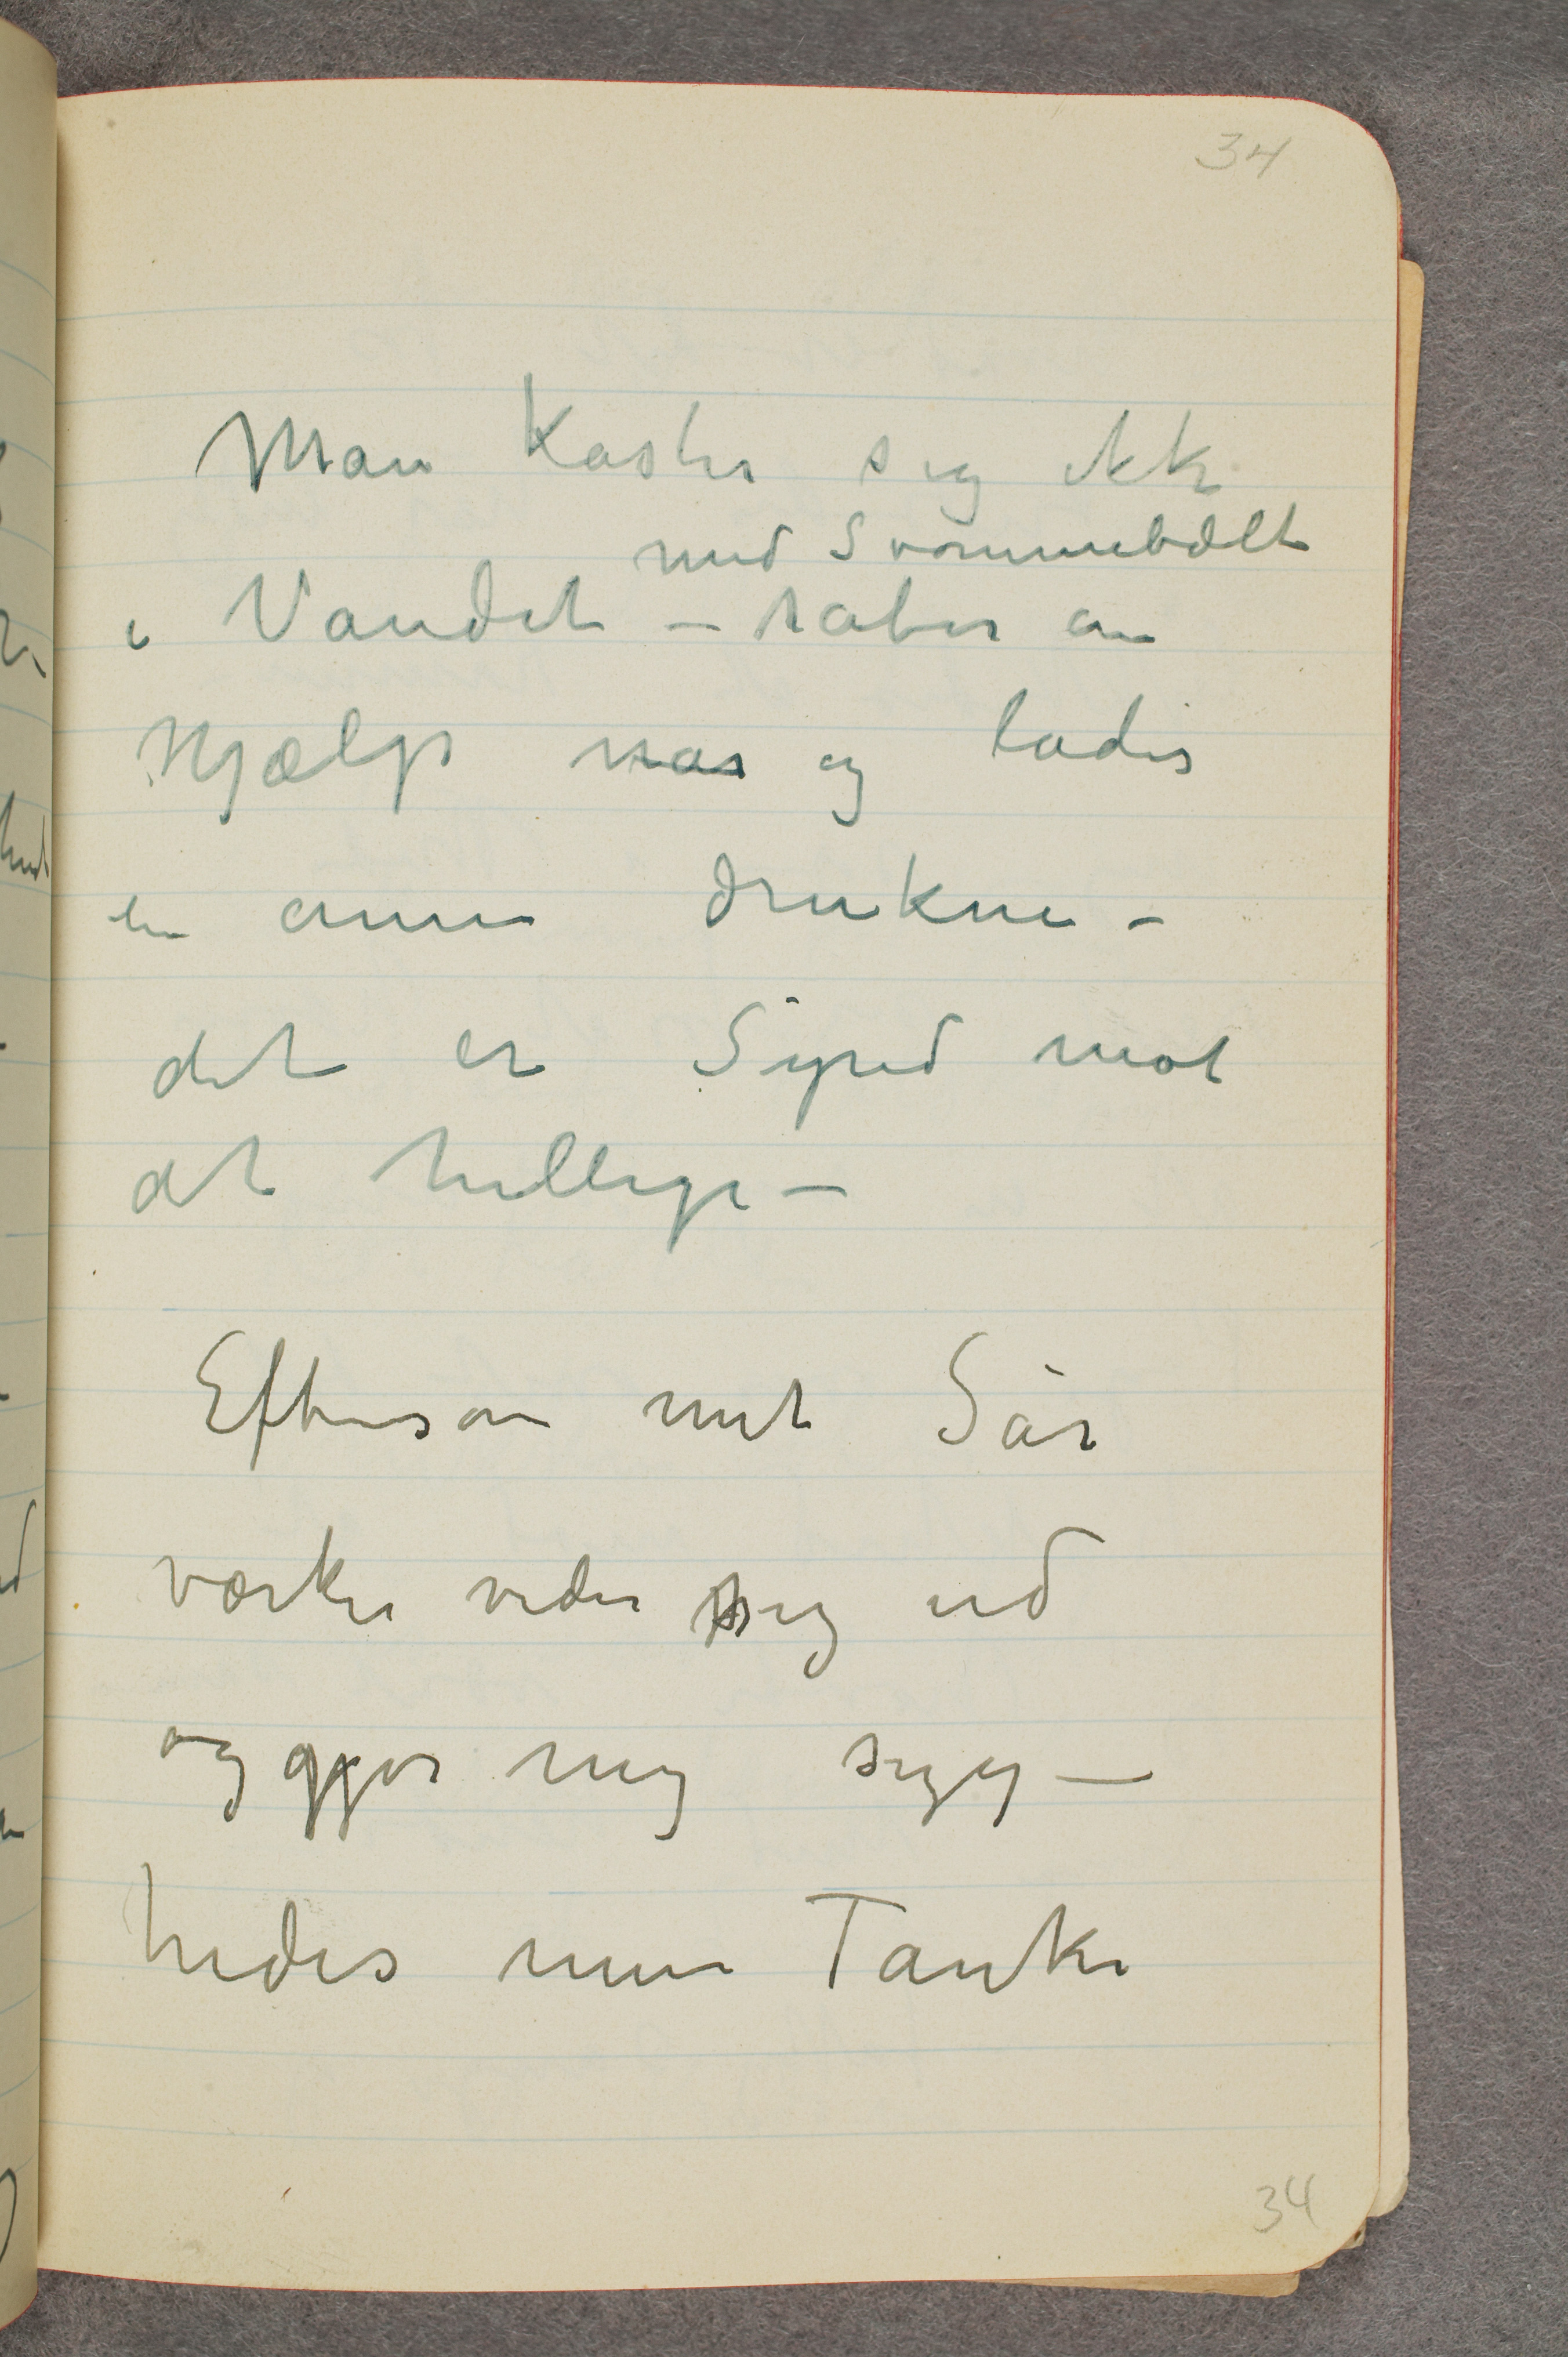 34
Man kaster sig ikke
med Svømmebælte
i Vandet – raber om
Hjælp nar og lader
en annen drukne –
det er Synd mot
det hellige –
Eftersom mit Sår
værker vider sig ud
og gjør mig syg –
hedes mine Tanker
34